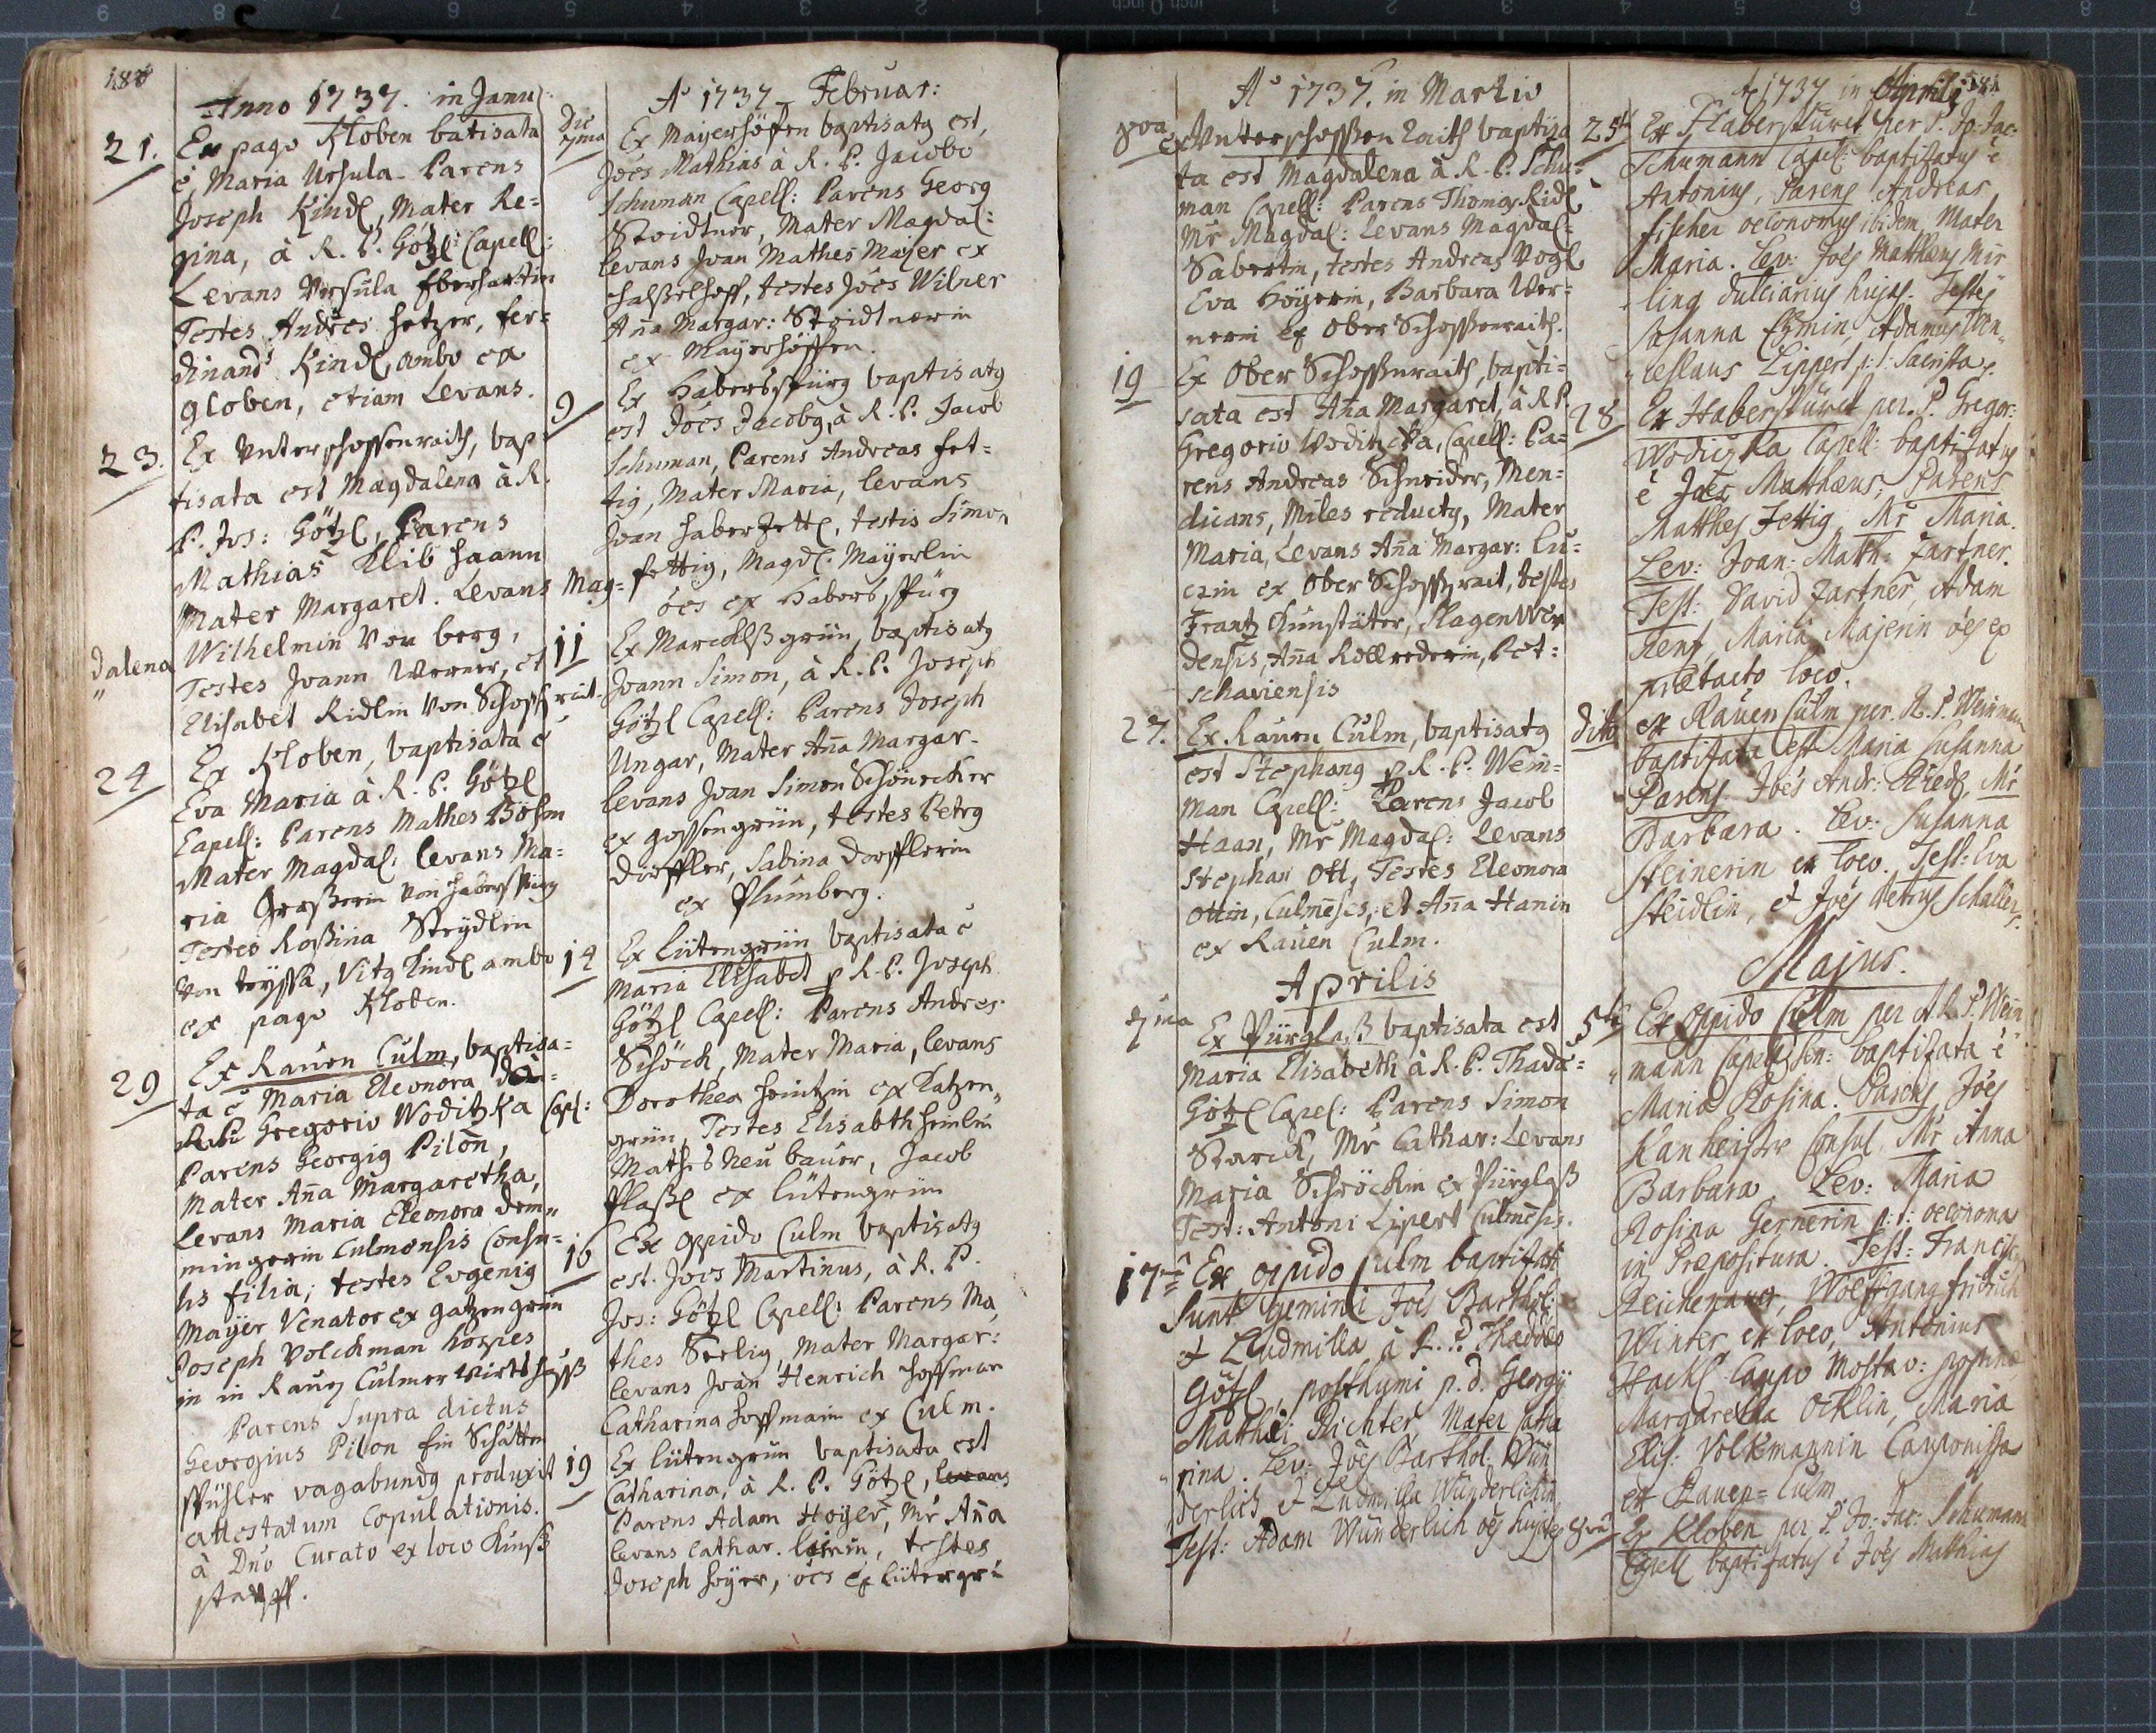 180
Anno 1737. in Janu:
21. Ex pago Kloben batisata
è, Maria Ursula. Parens
Joseph Kindl, Mater Re=
gina, à R. P. Götzl Capell:
Levans Ursula Eberhartin
Testes Andres Hetzer, fer=
dinand Kindl, ambo ex
Globen, etiam Levans.
23. Ex Unterschossenraith, bap=
tisata est Magdalena à R.
P. Jos: Götzl, Parens
Mathias Klib haann
Mater Margaret. Levans Mag=
dalena Wilhelmin von berg,
Testes Joann Werner, et
Elisabet Ridlin von Schossenrait.
24 Ex Kloben, baptisata è
Eva Maria à R. P. Götzl
Capell: Parens Mathes Böhm
Mater Magdal: levans Ma=
ria Graßerin von haberspürg
Testes Roßina Streydlin
von , Vitg Kindl ambo
ex pago Kloben.
29 Ex Rauen Culm, baptisa=
ta è Maria Eleonora
Gregorio Woditzka Capl:
Parens Georgig Pilon,
Mater Aña Margaretha,
Levans Maria Eleonora dem„
mingerin Culmensis Consu=
lis filia; testes Eugenig
Mayer Venator ex gatzengrün
Joseph Volckman hospes
in in Raug Culmer wirtshauß
Parens Supra dictus
Georgius Pilon ein Schatten
spühler vagabundg produxit
attestatum Copulationis.
à Dno Curato ex loco

A° 1737 Februar:
Die 7ma Ex Mayershöfen baptisatg est,
Joës Mathias à R. P. Jacobo
Schuman Capell: Parens Georg
Steidtner, Mater Magdal:
levans Joan Mathes Majer ex
, testes Joës Wilner
Aña Margar: Steidtnerin
ex Mayershöffen.
9 Ex Haberspürg baptisatg
est Joës Jacobg, à R. P. Jacob
Schuman, Parens Andreas fet=
tig, Mater Maria, levans
Joan haberzettl, testis Simon
fettig, Magdl. Mayerlin
oës ex Haberspürg
11 Ex Marcklßgrün, baptisatg
Joann Simon, à R. P. Joseph
Götzl Capell: Parens Joseph
Ungar, Mater Aña Margar.
levans Joan Simon Schönecker
ex gossengrün, testes Petrg
Dörffler, Sabina Dörfflerin
ex Plumberg.
14 Ex Lütengrün baptisata è
Maria Elisabet p R. P. Joseph
Götzl Capell: Parens Andres
Schöck, Mater Maria, levans
Dorothea heintzin ex Katzen„
grün, Testes Elisabth heinlin
Mathes Neubauer, Jacob
Plaßl ex lütengrün
16 Ex oppido Culm baptisatg
est. Joës Martinus, à R. P.
Jos: Götzl Capell: Parens Ma„
thes Seelig, Mater Margar:
levans Joan Henrich Hoffman
Catharina Hoffmain ex Culm.
19 Ex lütengrün baptisata est
Catharina, à R. P. Götzl, levans
Parens Adam Hoyer, Mr Aña
levans Cathar. , testes
Joseph hoyer, oës ex lütengr:

A° 1737. in Martio
8va ex Unterschossenraith baptisa
ta est Magdalena à R. P. Schu=
man Capell: Parens Thomas Ridl
Mr Magdal: Levans Magdal=
Sabertin, testes Andreas Vogl
Eva Hoyerin, Barbara Wer=
nerin ex Ober Schossenraith.
19 Ex Ober Schossenraith, bapti=
sata est Aña Margaret, à R P.
Gregorio Woditzka, Capell: Pa=
rens Andreas Schneider, Men=
dicans, Miles reductg, Mater
Maria, Levans Aña Margar: Lu=
ezin ex Ober Schossenrait, testes
Frantz Kunstätter, Slagenwer
densis, Aña , Pet=
schaviensis
27. Ex. Rauen Culm, baptisatg
est Stephang p R. P. Wein=
man Capell: Parens Jacob
Haan, Mr Magdal: Levans
Stephan Ott, Testes Eleonora
Ottin, Culmëses, et Aña Hanin
ex Rauen Culm.
Aprilis
7ma Ex Pürglaß baptisata est
Maria Elisabeth à R. P. Thadæ=
Götzl Capel: Parens Simon
Starck, Mr Cathar: Levans
Maria Schröckin ex Pürglaß
Test: Antoni Lipert Culmësis.
17ma Ex oppido Culm baptizati
sunt gemini Joës Barthol:
et Ludmilla à R. P. Thaddæo
Götzl, posthumi p. d. Georgÿ
Matthæi Richter, Mater Catha
rina. Lev: Joës Barthol: Wun
derlich et Ludmilla Wunderlichin
Test: Adam Wunderlich oës hujates

A° 1737 in Aprili 181
25ta Ex Haberspürck per P. Jo. Jac:
Schumann Capel: baptizatus è
Antonius, Parens Andreas
fischer oeconomus ibidem Mater
Maria. Lev: Joës Matthæus Mir
ling dulciarius hujas. Testes
Susanna , Adamus Wen„
ceslaus Lippert p: t: Sacrista.
28 Ex Haberspürck per. P. Gregor:
Wodiczka Capell: baptizatus
è Joës Matthæus; Parens
Matthes Fettig, Mr Maria.
Lev: Joan: Math: Zartner.
Test: David Zartner, Adam
, Maria Majerin oës ex
prætacto loco.
dito ex Rauen Culm per. R. P. Weinman
baptizata est Maria Susanna
Parens Joës Andr: , Mr
Barbara. Lev: Susanna
Steinerin ex loco. Test: Eva
Steidlin, et Joës Petrus Schaller.
Majus.
5ta Ex oppido Culm per A. R. P. Wein
mann Capell: Sen: baptizata è
Maria Rosina. Parens Joës
Kanheiser Consul, Mr Anna
Barbara Lev: Maria
Rosina Gernerin p: t: oeconoma
in Præpositura. Test: Francisc:
Reichenauer, Wolffgang fridrich
Winter, ex loco, Antonius
Hackl Caupo Mostav:
Margaretha Öcklin, Maria
Elis: Volkmannin Cauponissa
ex Rauen=Culm
8va Ex Kloben per P. Jo: Jac: Schumann
Capell baptizatus è Joës Mathias